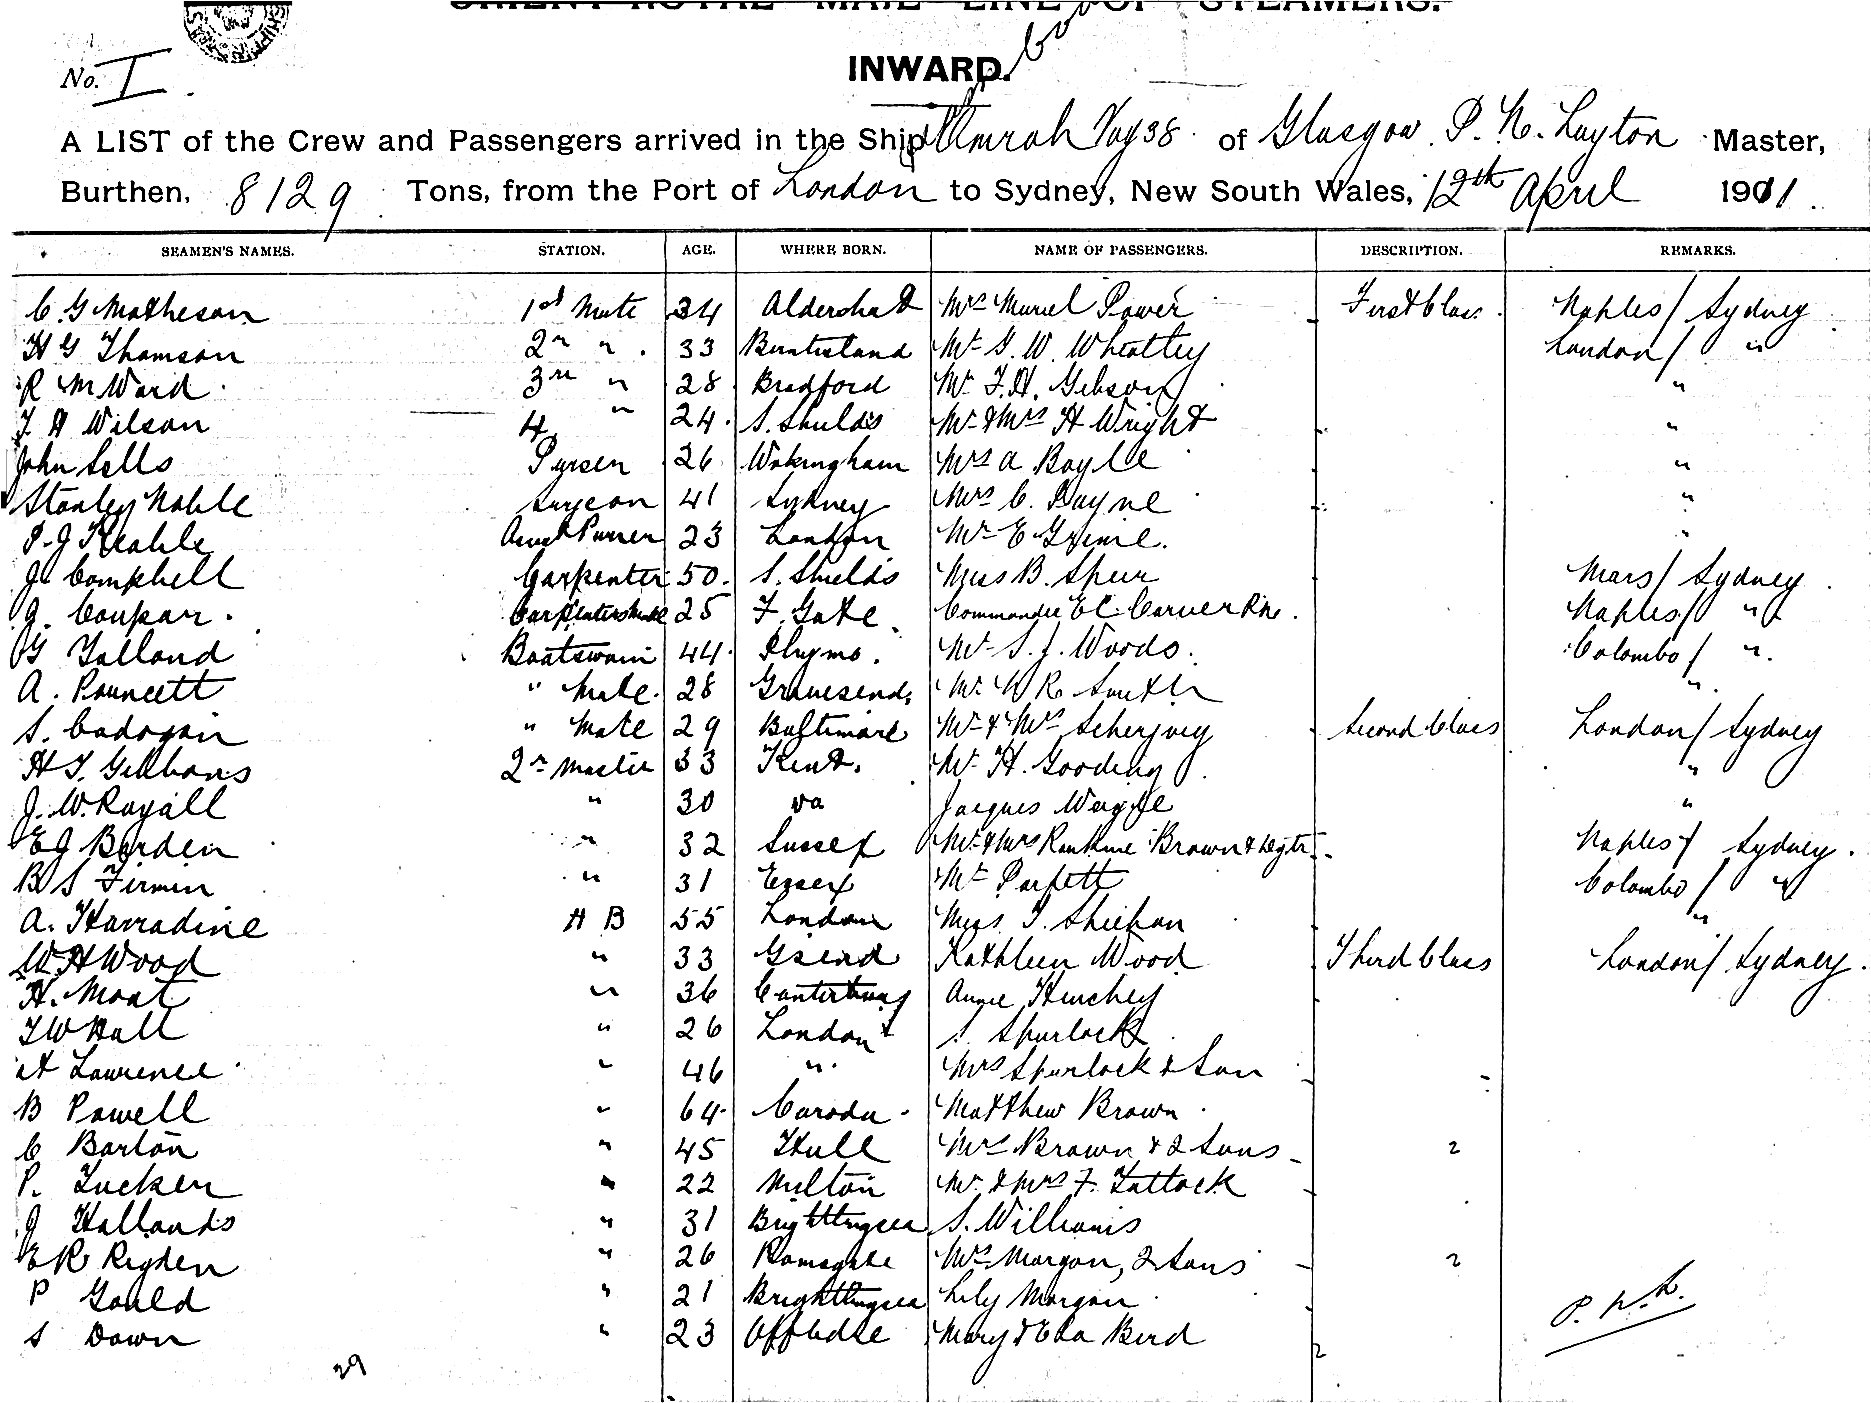 ORIENT ROYAL MAIL LINE OF STEAMERS.
No. I.
INWARD.
A LIST of the Crew and Passengers arrived in the Ship Omrah Voy 38 of Glasgow P. N. Layton Master,
Burthen, 8129 Tons, from the Port of London to Sydney, New South Wales, 12th April 1911.
SEAMEN'S NAMES. STATION. AGE. WHERE BORN. NAME OF PASSENGERS. DESCRIPTION. REMARKS.
C. G Matheson 1st Mate 34 Aldershot Mrs Muriel Power First Class. Naples / Sydney
H G Thomson 2nd " 33 Burntisland Mr G. W. Wheatley London / "
R M Ward 3rd " 28 Bradford Mr F. H. Gibson "
F H Wilson 4 " 24. S. Shields Mr & Mrs H Wright "
John Sells Purser 26 Wokingham Mrs A Boyle "
Stanley Noble Surgeon 41 Sydney Mrs C. Payne "
P. J Keable Purser 23 London Mr E Grime. "
J. Campbell Carpenter 50. S. Shields Miss B. Spur Mars / Sydney
J. Coupar. Carpenters Mate 25 F. Gate. Commander E C Carver RN. Naples / "
G Golland Boatswain 44. Plymo. Mr S. J. Woods. Colombo / ".
A. Pouncett " Mate. 28 Gravesend. Mr W R Smith "
S. Cadogan " Mate 29 Baltimore Mr & Mrs Scherjvey Second Class London / Sydney
H T. Gibbons Qr Master 33 Kent. Mr H. Gooding "
J. W. Royall " 30 Do Jacques "
E J Borden " 32 Sussex Mr & Mrs Rankine Brown & Naples / Sydney.
B S Firmin " 31 Essex Mr Parfett Colombo / "
A. Harradine A B 55 London Miss T. Sheehan "
W. H Wood " 33 Gsend Kathleen Wood Third Class London / Sydney.
H. Moat " 36 Canterbury Annie Hinchey
T W Hall " 26 London S. Spurlock
Lawrence " 46 " Mrs Spurlock & Son
B Powell " 64. Matthew Brown
C Barton " 45 Hull Mrs Brown & 2 Sons 2
P. Tucker " 22 Milton Mr & Mrs F. Tattock
J Hallands " 31 Brightlingsea S. Williams
E R Rigden " 26 Ramsgate Mrs Morgan, 2 Sons 2
P Gould " 21 Brightlingsea Lily Morgan
S Down " 23 Mary & Eda Bird
P. N. L.
29